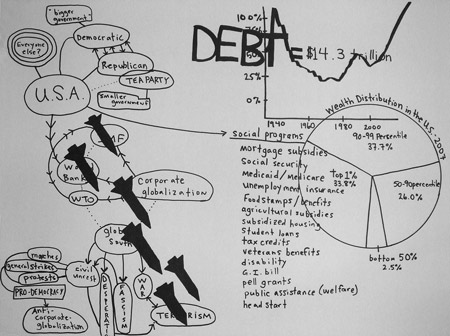 "bigger
government"
Democratic
Everyone
else?
Republican
TEA PARTY
U.S.A.
Smaller
government
DEBT = $14.3 trillion
100%
75%
50%
25%
0%
1940 1960 1980 2000
Wealth Distribution in the U.S. - 2007
90-99 Percentile
37.7%
Top 1%
33.8%
50-90 percentile
26.0%
bottom 50%
2.5%
Social programs
mortgage subsidies
Social security
Medicaid/Medicare
unemployment insurance
Food stamps/benefits
agricultural subsidies
subsidized housing
Student loans
tax credits
veterans benefits
disability
G.I. bill
pell grants
public assistance (welfare)
head start
MF
World
Bank
WTO
Corporate
globalization
global
South
marches
general strikes
protests
PRO-DEMOCRACY
Anti-
corporate-
globalization
civil
unrest
FASCISM
WAR